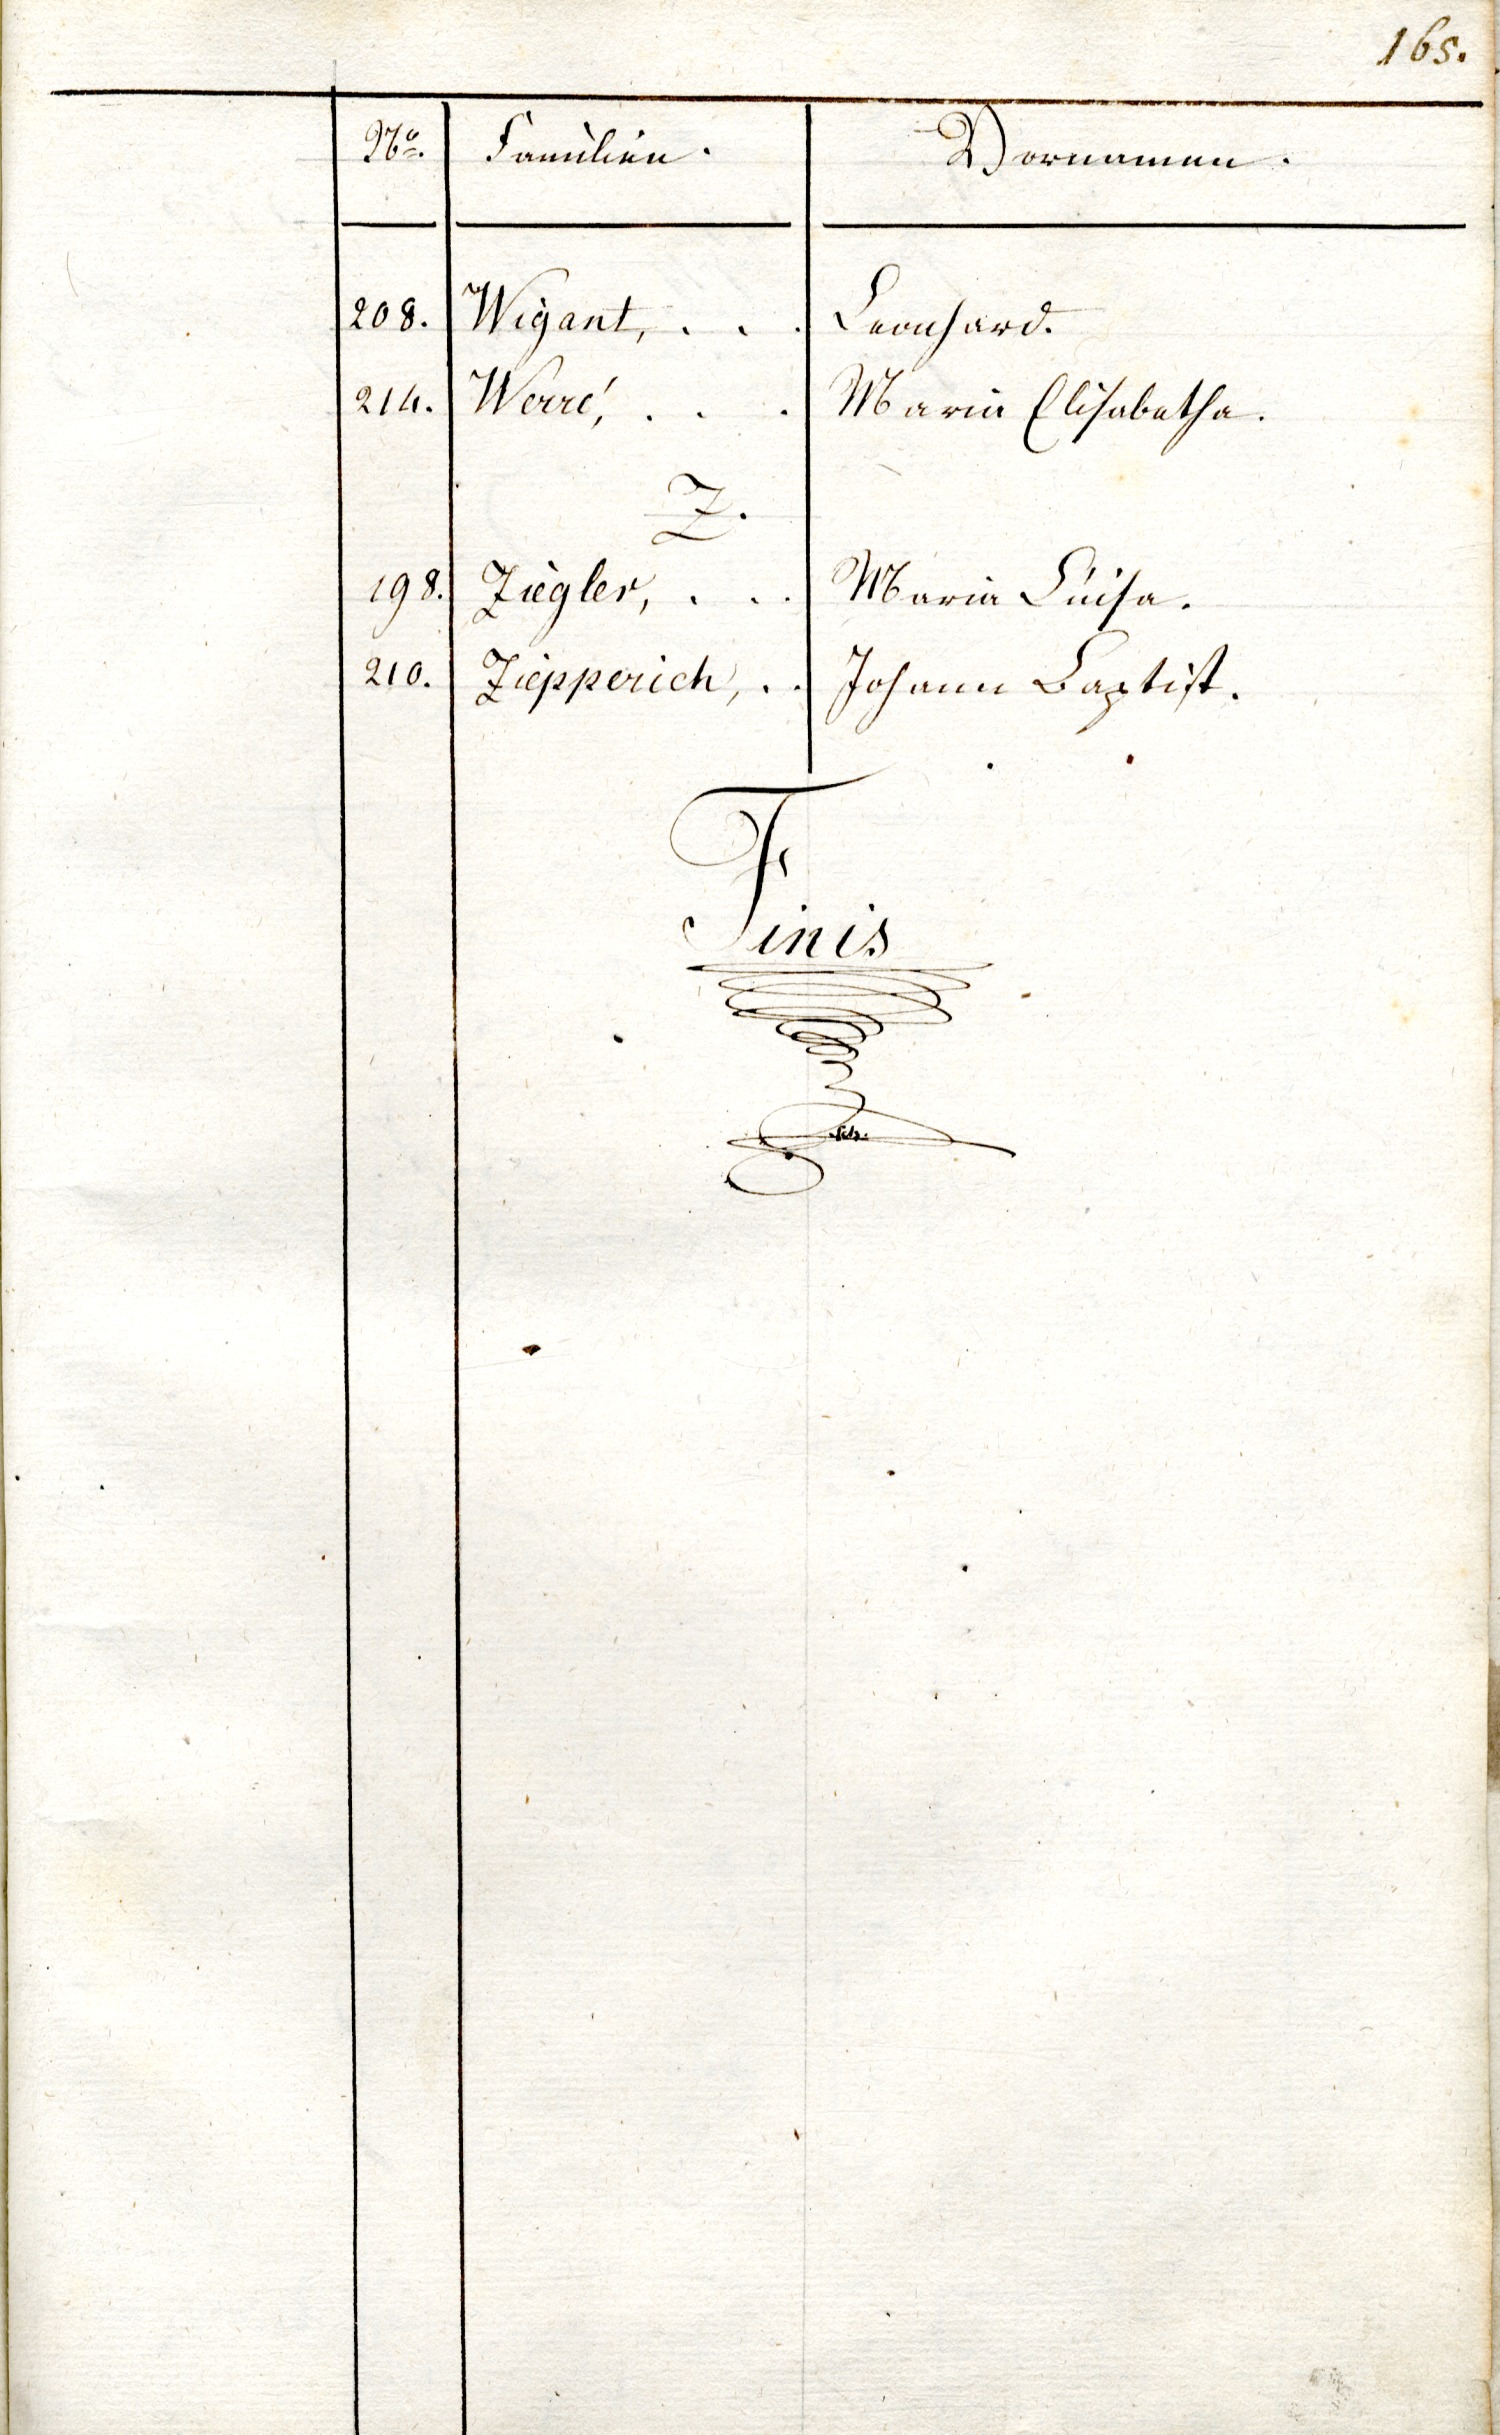 165.
No. Familien. Vornamen.
208. Wigant, . . . Leonhard.
214. Werré, . . . Maria Elisabetha.
Z.
198. Ziegler, . . . Maria Luisa.
210. Ziepperich, . . Johann Baptist.
Finis